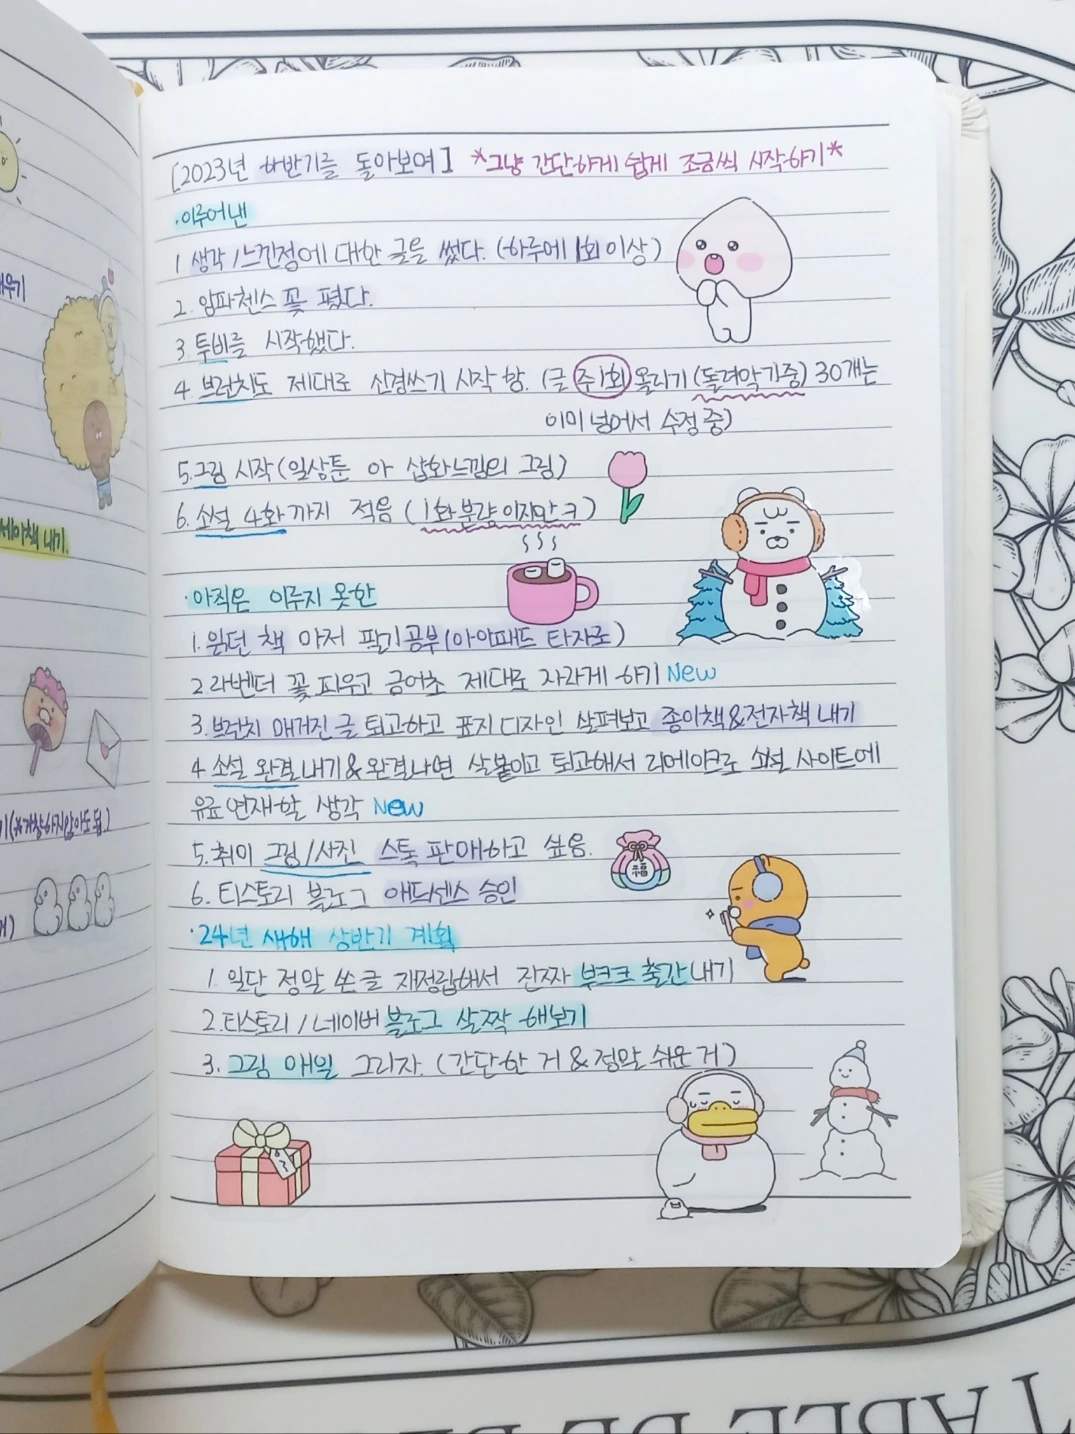 [2023년 하반기를 돌아보며] *그냥 간단하게 쉽게 조금씩 시작하기*
·이루어낸
1 생각/느낀점에 대한 글을 썼다. (하루에 1회 이상)
2. 임파첸스 꽃 폈다.
3 투비를 시작했다.
4 브런치도 제대로 신경쓰기 시작 함. (글 주1회 올리기 (돌려막기중) 30개는
이미 넘어서 수정 중)
5.그림 시작 (일상툰 아 삽화느낌의 그림)
6. 소설 4화까지 적음 (1화분량이지만ㅋ)
·아직은 이루지 못한
1. 읽던 책 마저 필기공부 (아이패드 타자로)
2 라벤더 꽃 피우고 금어초 제대로 자라게 하기 New
3.브런치 매거진 글 퇴고하고 표지디자인 살펴보고 종이책&전자책 내기
4 소설 완결내기&완결나면 살붙이고 퇴고해서 리메이크로 소설 사이트에
유료연재할 생각 New
5.취미 그림/사진 스톡 판매하고 싶음.
6. 티스토리 블로그 애드센스 승인
·24년 새해 상반기 계획
1. 일단 정말 쓴 글 재정립해서 진짜 부크크 출간내기
2.티스토리/네이버 블로그 살짝 해보기
3. 그림 매일 그리자. (간단한 거 & 정말 쉬운거)
福
책 내기
TABLE DE